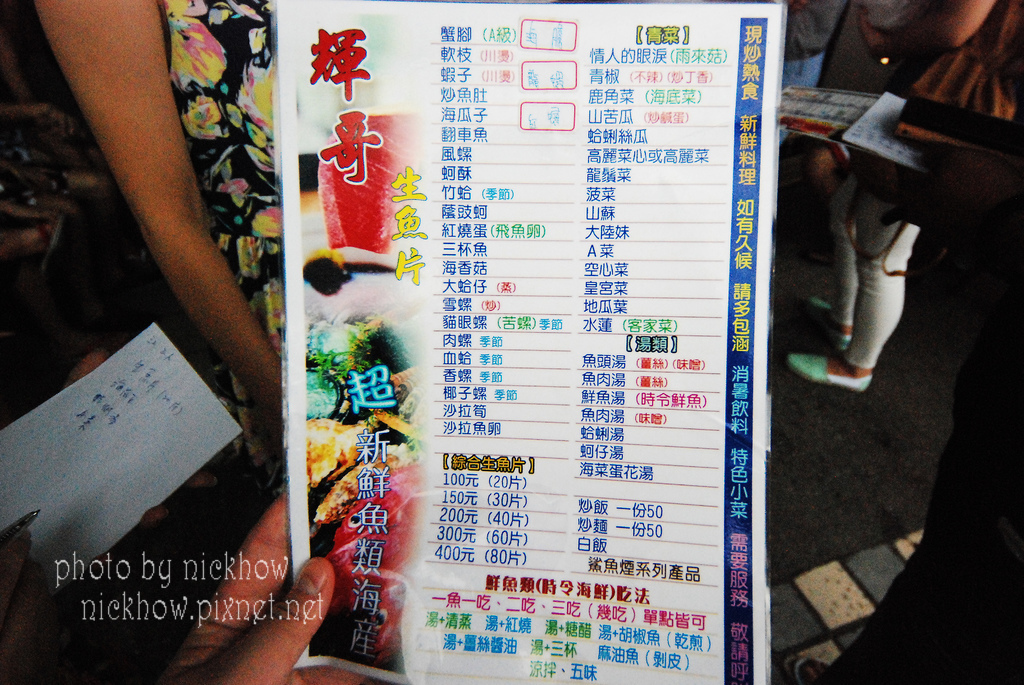 輝哥
生魚片
超
新鮮魚類海產
蟹腳 (A級)
軟枝 (川燙)
蝦子 (川燙)
炒魚肚
海瓜子
翻車魚
風螺
蚵酥
竹蛤 (季節)
蔭豉蚵
紅燒蛋(飛魚卵)
三杯魚
海香菇
大蛤仔 (蒸)
雪螺 (炒)
貓眼螺 (苦螺)季節
肉螺 季節
血蛤 季節
香螺 季節
椰子螺 季節
沙拉筍
沙拉魚卵
【綜合生魚片】
100元 (20片)
150元 (30片)
200元 (40片)
300元 (60片)
400元 (80片)
【青菜】
情人的眼淚(雨來菇)
青椒 (不辣)(炒丁香)
鹿角菜 (海底菜)
山苦瓜 (炒鹹蛋)
蛤蜊絲瓜
高麗菜心或高麗菜
龍鬚菜
菠菜
山蘇
大陸妹
A菜
空心菜
皇宮菜
地瓜葉
水蓮 (客家菜)
【湯類】
魚頭湯 (薑絲)(味噌)
魚肉湯 (薑絲)
鮮魚湯 (時令鮮魚)
魚肉湯 (味噌)
蛤蜊湯
蚵仔湯
海菜蛋花湯
炒飯 一份50
炒麵 一份50
白飯
鯊魚煙系列產品
鮮魚類(時令海鮮)吃法
一魚一吃、二吃、三吃(幾吃)單點皆可
湯+清蒸 湯+紅燒 湯+糖醋 湯+胡椒魚(乾煎)
湯+薑絲醬油 湯+三杯 麻油魚(剝皮)
涼拌、五味
現炒熟食 新鮮料理 如有久候 請多包涵 消暑飲料 特色小菜 需要服務 敬請呼
photo by nickhow
nickhow.pixnet.net